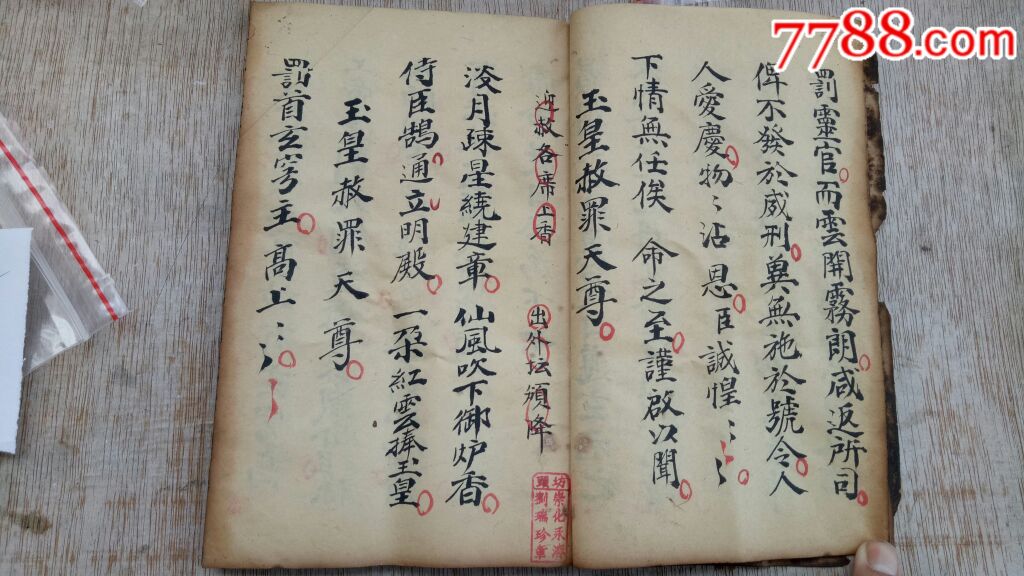 7788.com
罰靈官。而雲開霧朗咸返所司。
俾不發於威刑。奠無施於號令。人
人愛慶。物〻沾恩。臣誠惶〻〻
下情無任俟 命之至。謹啟以聞。
玉皇赦罪天尊。
迎赦各席上香 出外坛頒降
淡月疎星繞建章。仙風吹下御炉香。
侍臣鵠通立明殿。一朶紅雲捧玉皇。
玉皇赦罪天尊。
罰首玄穹主。高上〻〻。
坊崇化禾
頭劉瑞珍章